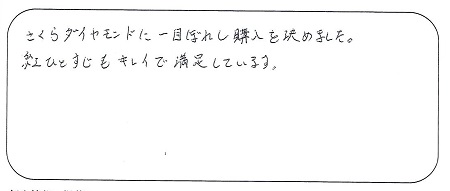 さくらダイヤモンドに一目ぼれし購入を決めました。
紅ひとすじもキレイで満足しています。